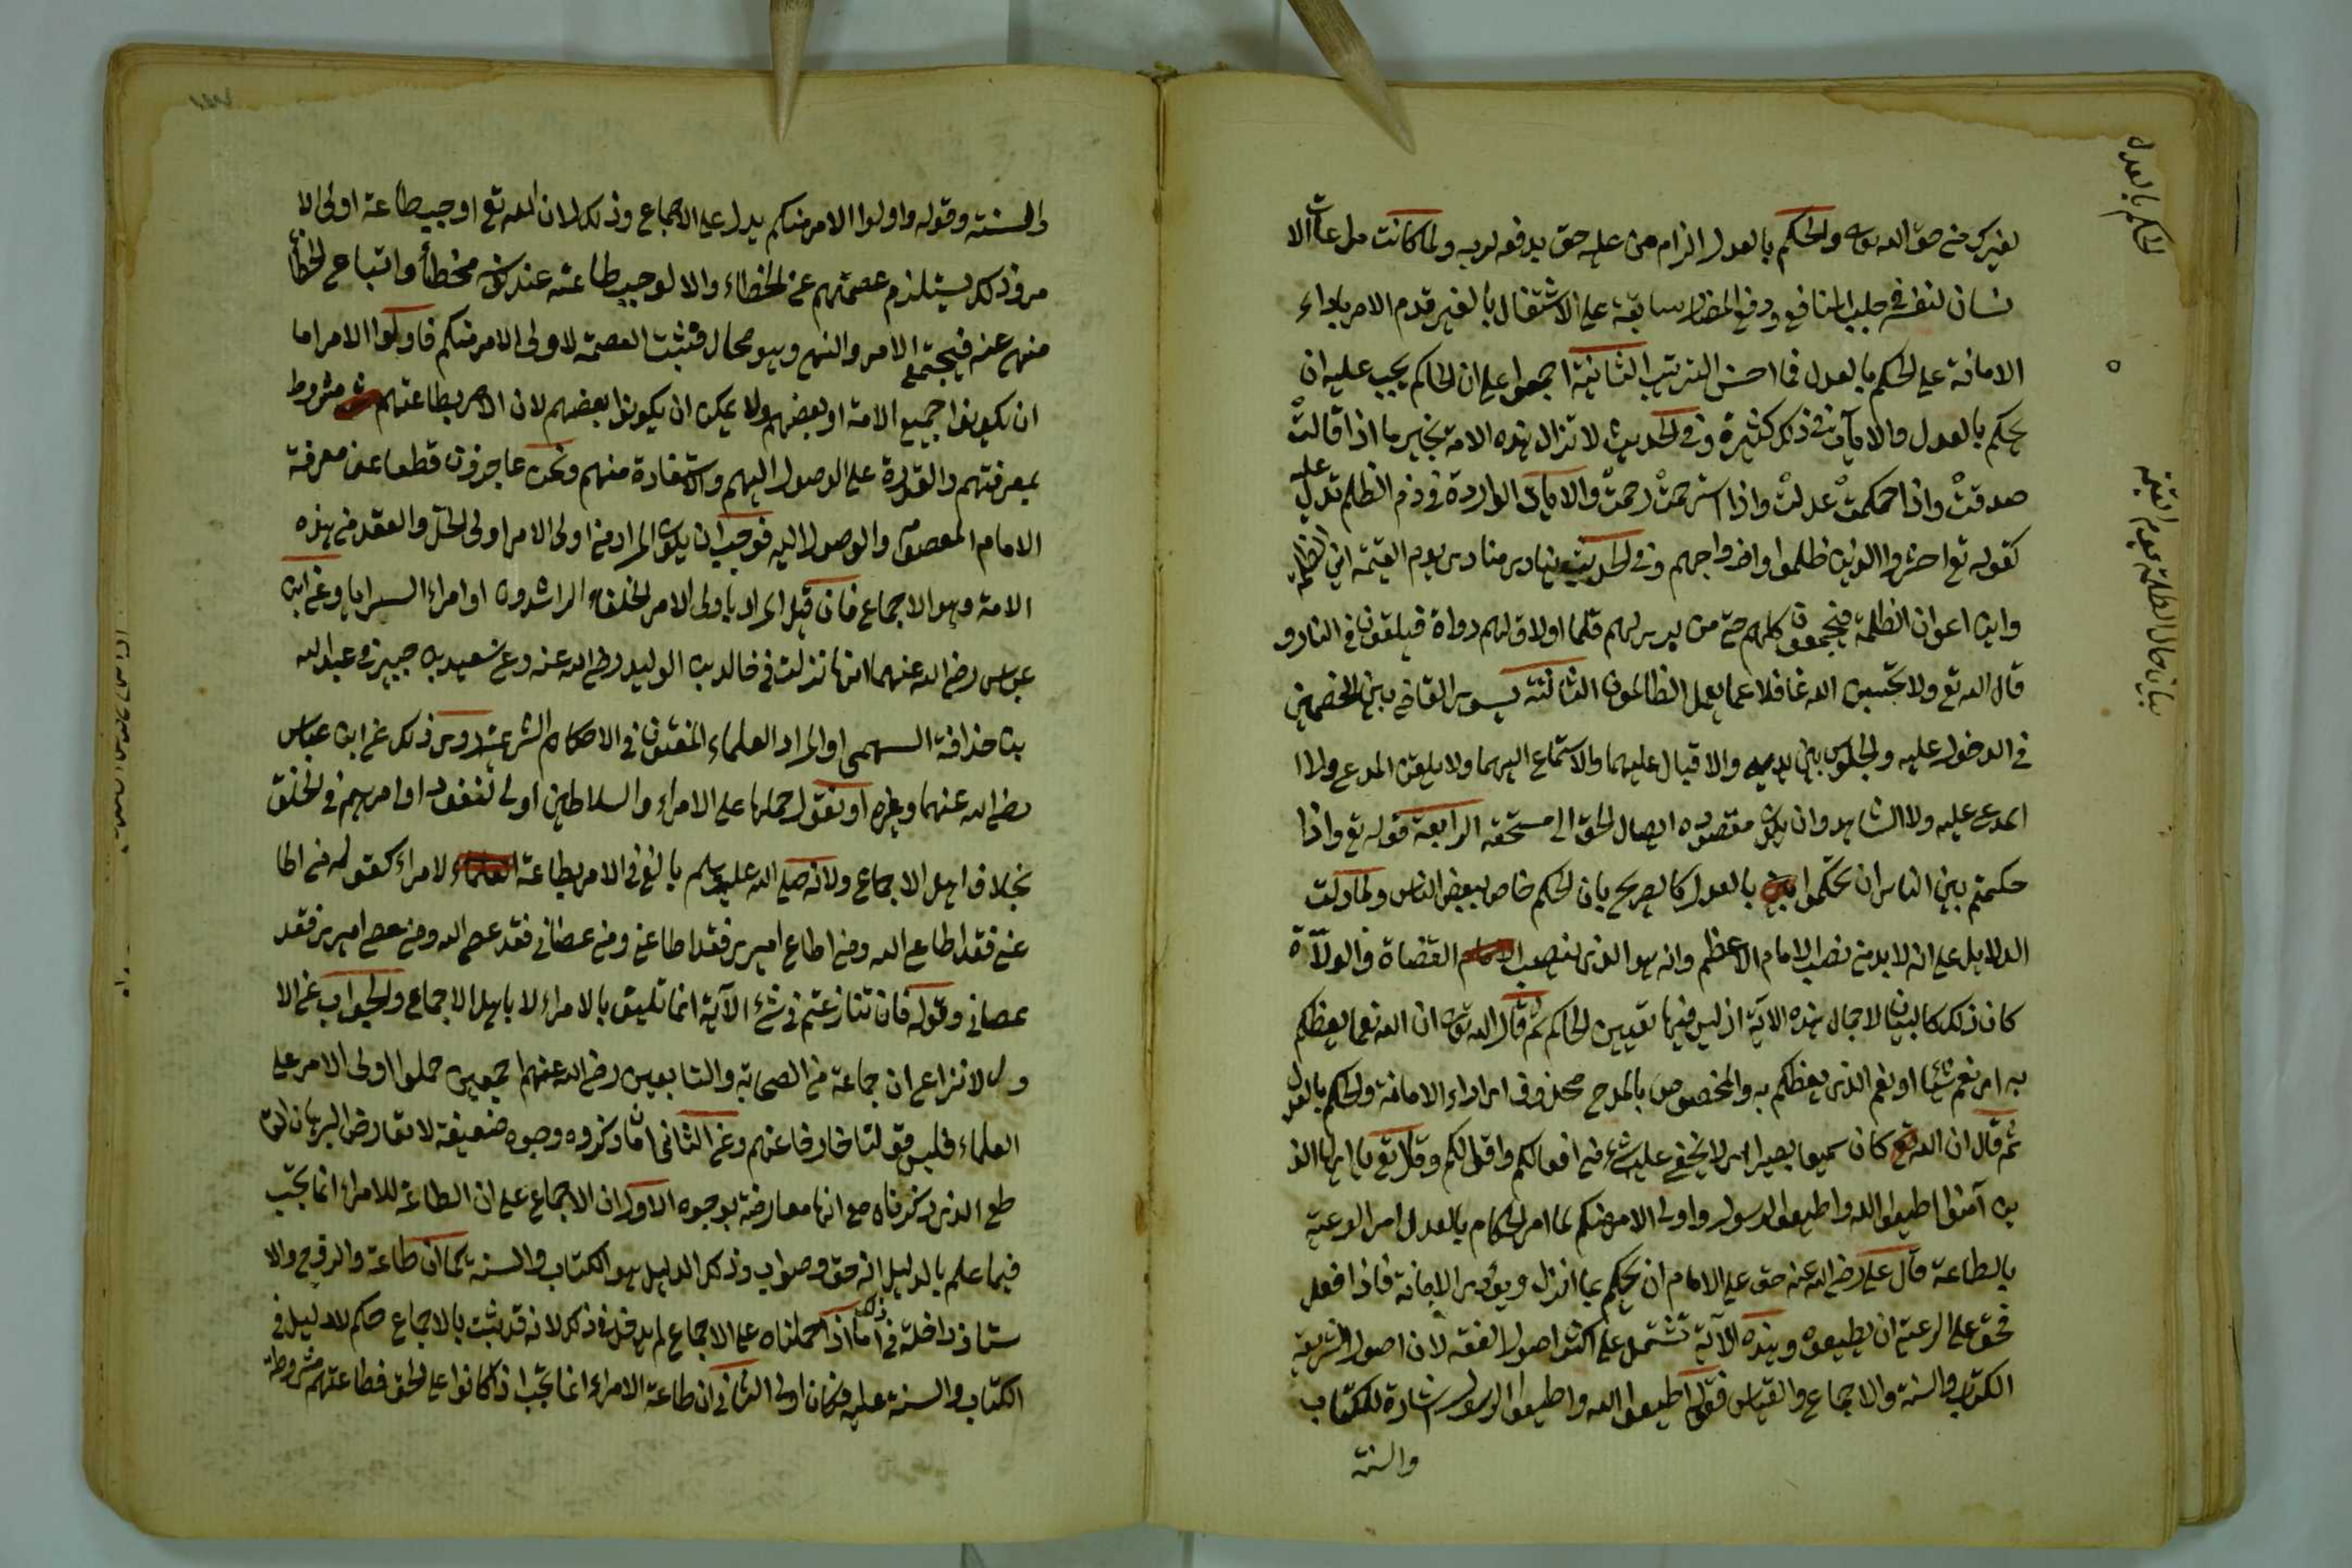 لغيرك من حق الله تعالى والحكم بالعدل الزام من عليه حق يدفعه لربه ولما كانت مراعات الا
نسان لنفسه في جلب المنافع ودفع المضار سابقة على الاشتغال بالغير قدم الامر باداء
الامانة على الحكم بالعدل فما احسن الترتيب الثانية اجمعوا على ان الحاكم يجب عليه ان
يحكم بالعدل والايات في ذلك كثيرة وفي الحديث لا تزال هذه الامة بخير ما اذا قالت
صدقت واذا حكمت عدلت واذا استرحمت رحمت والايات الواردة في ذم الظلم تدل عليه
كقوله تع احشروا الذين ظلموا وازواجهم وفي الحديث ينادي مناد يوم القيمة اين الظلمة
واين اعوان الظلمة فيجمعون كلهم حتى من يرى لهم قلما او لاق لهم دواة فيلقون في النار و
قال الله تع ولا تحسبن الله غافلا عما يعمل الظالمون الثالثة يسوي القاضي بين الخصمين
في الدخول عليه والجلوس بين يديه والاقبال عليهما والاستماع اليهما ولا يلقن المدعي ولا ا
لمدعى عليه ولا الشاهد وان يكون مقصوده ايصال الحق الى مستحقه الرابعة قوله تع واذا
حكمتم بين الناس ان تحكموا بالعدل كالصريح بان الحكم خاص ببعض الناس ولما دلت
الدلايل على انه لا بد من نصب الامام الاعظم وانه هو الذي ينصب القضاة والولاة
كان ذلك كالبيان لاجمال هذه الآية اذ ليس فيها تعيين الحاكم ثم قال الله تعالى ان الله نعما يعظكم
به اي نعم شيئا او نعم الذي يعظكم به والمخصوص بالمدح محذوف اي اداء الامانة والحكم بالعدل
ثم قال ان الله تع كان سميعا بصيرا اي لا يخفى عليه شيء من افعالكم واقوالكم وقال تع يا ايها الذ
ين آمنوا اطيعوا الله واطيعوا الرسول واولي الامر منكم لما امر الحكام بالعدل امر الرعية
بالطاعة قال علي رضي الله عنه حق على الامام ان يحكم بما انزل ويؤدي الامانة فاذا فعل
فحق على الرعية ان يطيعوه وهذه الآية تشتمل على اكثر اصول الفقه لان اصول الشريعة
الكتاب والسنة والاجماع والقياس فقوله اطيعوا الله واطيعوا الرسول اشارة للكتاب
والسنة
الحكم بالعدل
بيان حال الظلمة يوم القيمة
والسنة وقوله واولوا الامر منكم يدل على الاجماع وذلك لان الله تع اوجب طاعة اولي الا
مر وذلك يستلزم عصمتهم عن الخطاء والا لوجب طاعته عند كونه مخطأ واتباع الخطأ
منهي عنه فيجتمع الامر والنهي وهو محال فثبت العصمة لاولي الامر منكم فاولوا الامر اما
ان يكونوا جميع الامة او بعضهم ولا يمكن ان يكونوا بعضهم لان الامر بطاعتهم مشروط
بمعرفتهم والقدرة على الوصول اليهم والاستفادة منهم ونحن عاجزون قطعا عن معرفة
الامام المعصوم والوصول اليه فوجب ان يكون المراد من اولي الامر اولي الحل والعقد من هذه
الامة وهو الاجماع فان قيل المراد باولي الامر الخلفاء الراشدون او امراء السرايا وعن ابن
عباس رضي الله عنهما انها نزلت في خالد بن الوليد رضي الله عنه وعن سعيد بن جبير في عبد الله
بن حذافة السهمي او المراد العلماء المفتون في الاحكام الشرعية وروي ذلك عن ابن عباس
رضي الله عنهما وغيره او نقول حملها على الامراء والسلاطين اولى لنفوذ اوامرهم في الخلق
بخلاف اهل الاجماع ولانه صلى الله عليه وسلم بالغ في الامر بطاعة الامراء كقوله من اطا
عني فقد اطاع الله ومن اطاع اميري فقد اطاعني ومن عصاني فقد عصى الله ومن عصى اميري فقد
عصاني وقوله فان تنازعتم في شيء الآية انما تليق بالامراء لا باهل الاجماع والجواب عن الا
ول لا نزاع ان جماعة من الصحابة والتابعين رضي الله عنهم اجمعين حملوا اولي الامر على
العلماء فليس قولنا خارقا عنهم وعن الثاني ان ما ذكروه وجوه ضعيفة لا تعارض البرهان القا
طع الذي ذكرناه مع انها معارضة بوجوه الاول ان الاجماع على ان الطاعة للامراء انما تجب
فيما علم بالدليل انه حق وصواب وذلك الدليل هو الكتاب والسنة كما ان طاعة والزوج والا
ستاذ داخلة في ذلك اما اذا حملناه على الاجماع لم يدخل في ذلك لانه قد يثبت بالاجماع حكم لا دليل في
الكتاب والسنة عليه فكان اولى الثاني ان طاعة الامراء انما تجب اذا كانوا على الحق فطاعتهم مشروطة